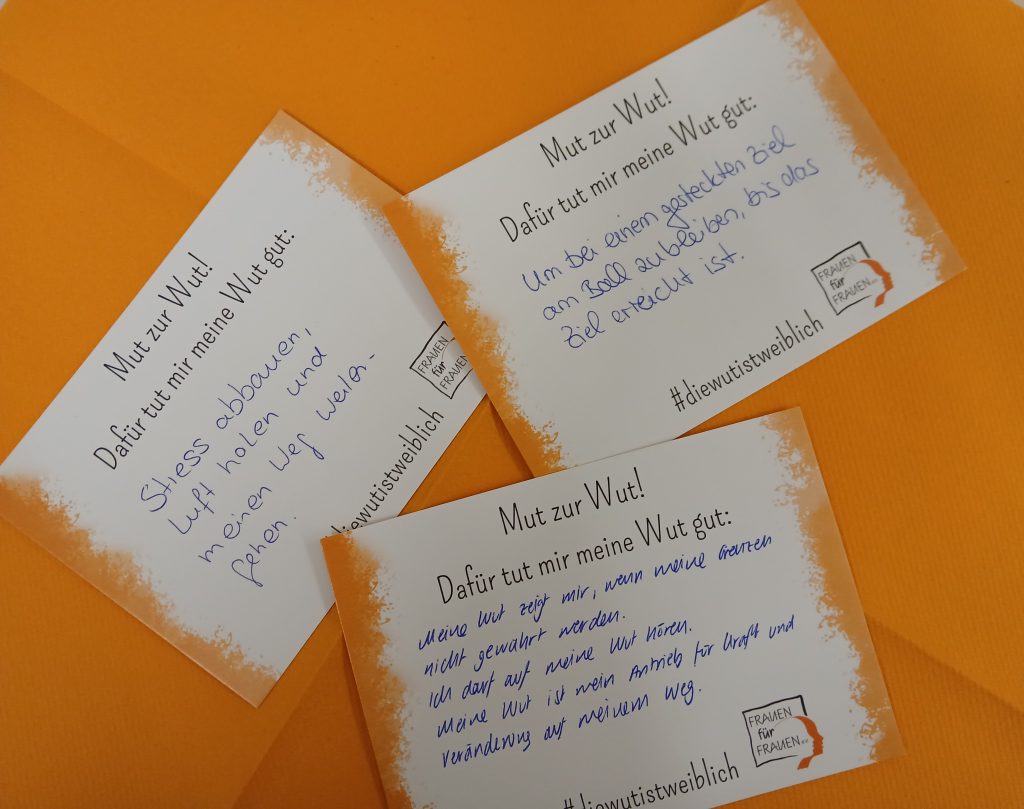 Mut zur Wut!
Dafür tut mir meine Wut gut:
Stress abbauen,
Luft holen und
meinen Weg weiter-
gehen.
FRAUEN
für
FRAUEN
diewutistweiblich
Mut zur Wut!
Dafür tut mir meine Wut gut:
Um bei einem gesteckten Ziel
am Ball zu bleiben, bis das
Ziel erreicht ist.
FRAUEN
für
FRAUEN e.V.
#diewutistweiblich
Mut zur Wut!
Dafür tut mir meine Wut gut:
Meine Wut zeigt mir, wenn meine Grenzen
nicht gewahrt werden.
Ich darf auf meine Wut hören.
Meine Wut ist mein Antrieb für Kraft und
Veränderung auf meinem Weg.
FRAUEN
für
FRAUEN e.V.
#diewutistweiblich